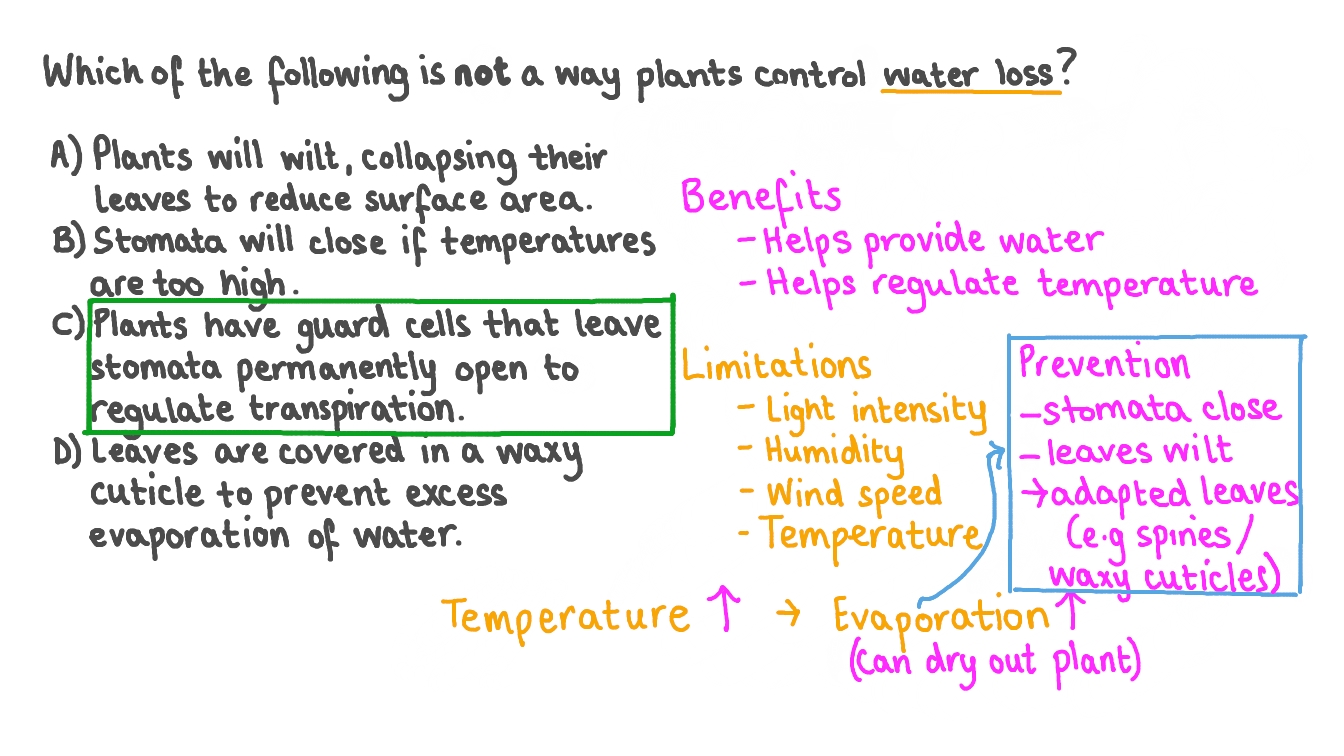 Which of the following is not a way plants control water loss?
A) Plants will wilt, collapsing their
leaves to reduce surface area.
B) Stomata will close if temperatures
are too high.
C) Plants have guard cells that leave
stomata permanently open to
regulate transpiration.
D) Leaves are covered in a waxy
cuticle to prevent excess
evaporation of water.
Benefits
- Helps provide water
- Helps regulate temperature
Limitations
- Light intensity
- Humidity
- Wind speed
- Temperature
Prevention
- stomata close
- leaves wilt
→ adapted leaves
(e.g spines/
waxy cuticles)
Temperature ↑ → Evaporation ↑
(can dry out plant)